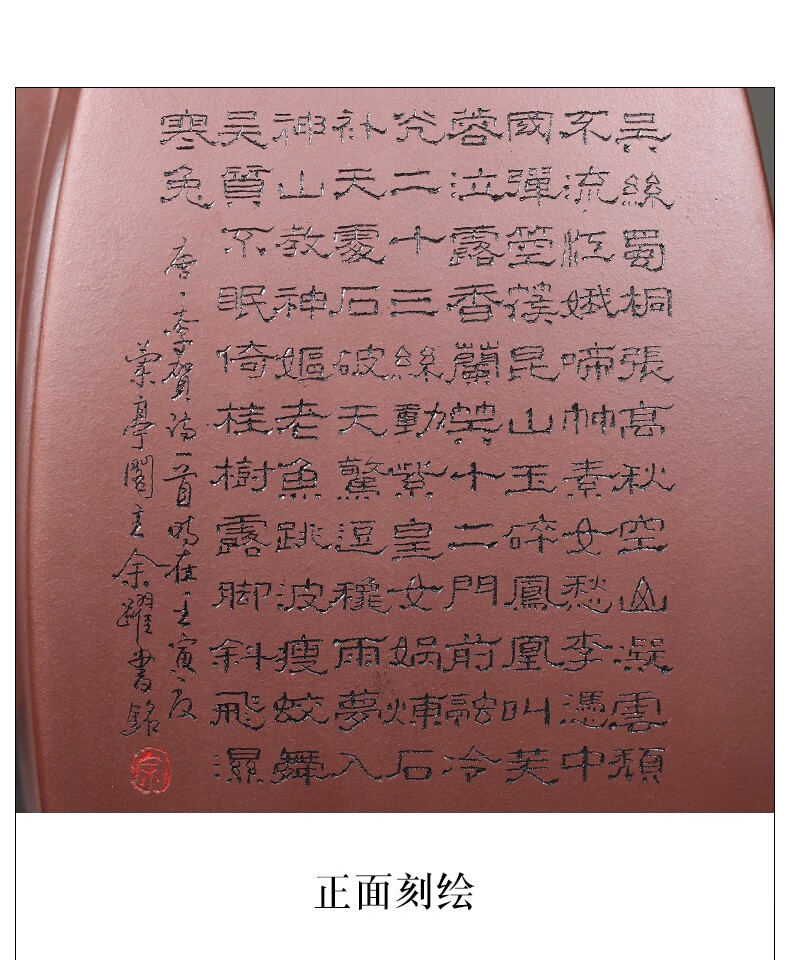 吴絲蜀桐張高秋空山凝雲頹
不流江娥啼竹素女愁李憑中
國彈箜篌昆山玉碎鳳凰叫芙
蓉泣露香蘭笑十二門前融冷
光二十三絲動紫皇女媧煉石
补天處石破天驚逗穐雨夢入
神山教神嫗老魚跳波瘦蛟舞
吴質不眠倚桂樹露脚斜飛濕
寒兔
唐·李賀詩一首時在壬寅夏
亭閣主余躍書銘
余
正面刻绘